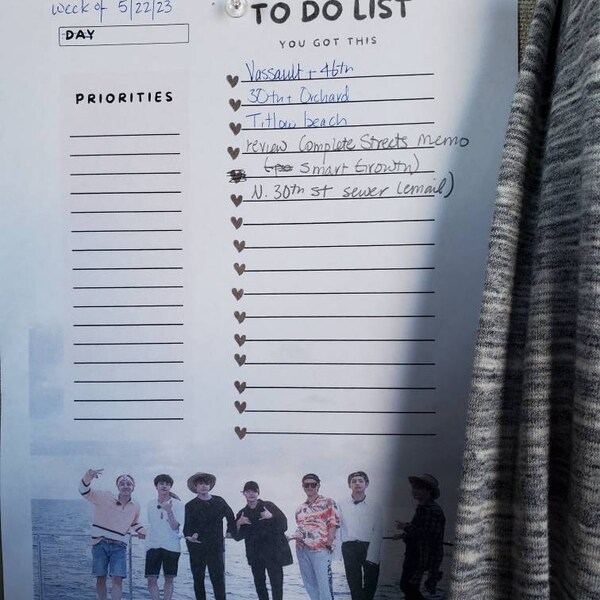 week of 5/22/23
DAY
TO DO LIST
YOU GOT THIS
PRIORITIES
Vassault + 46th
30th + Orchard
Titlow beach
review Complete Streets memo
Smart Growth)
N. 30th st sewer (email)